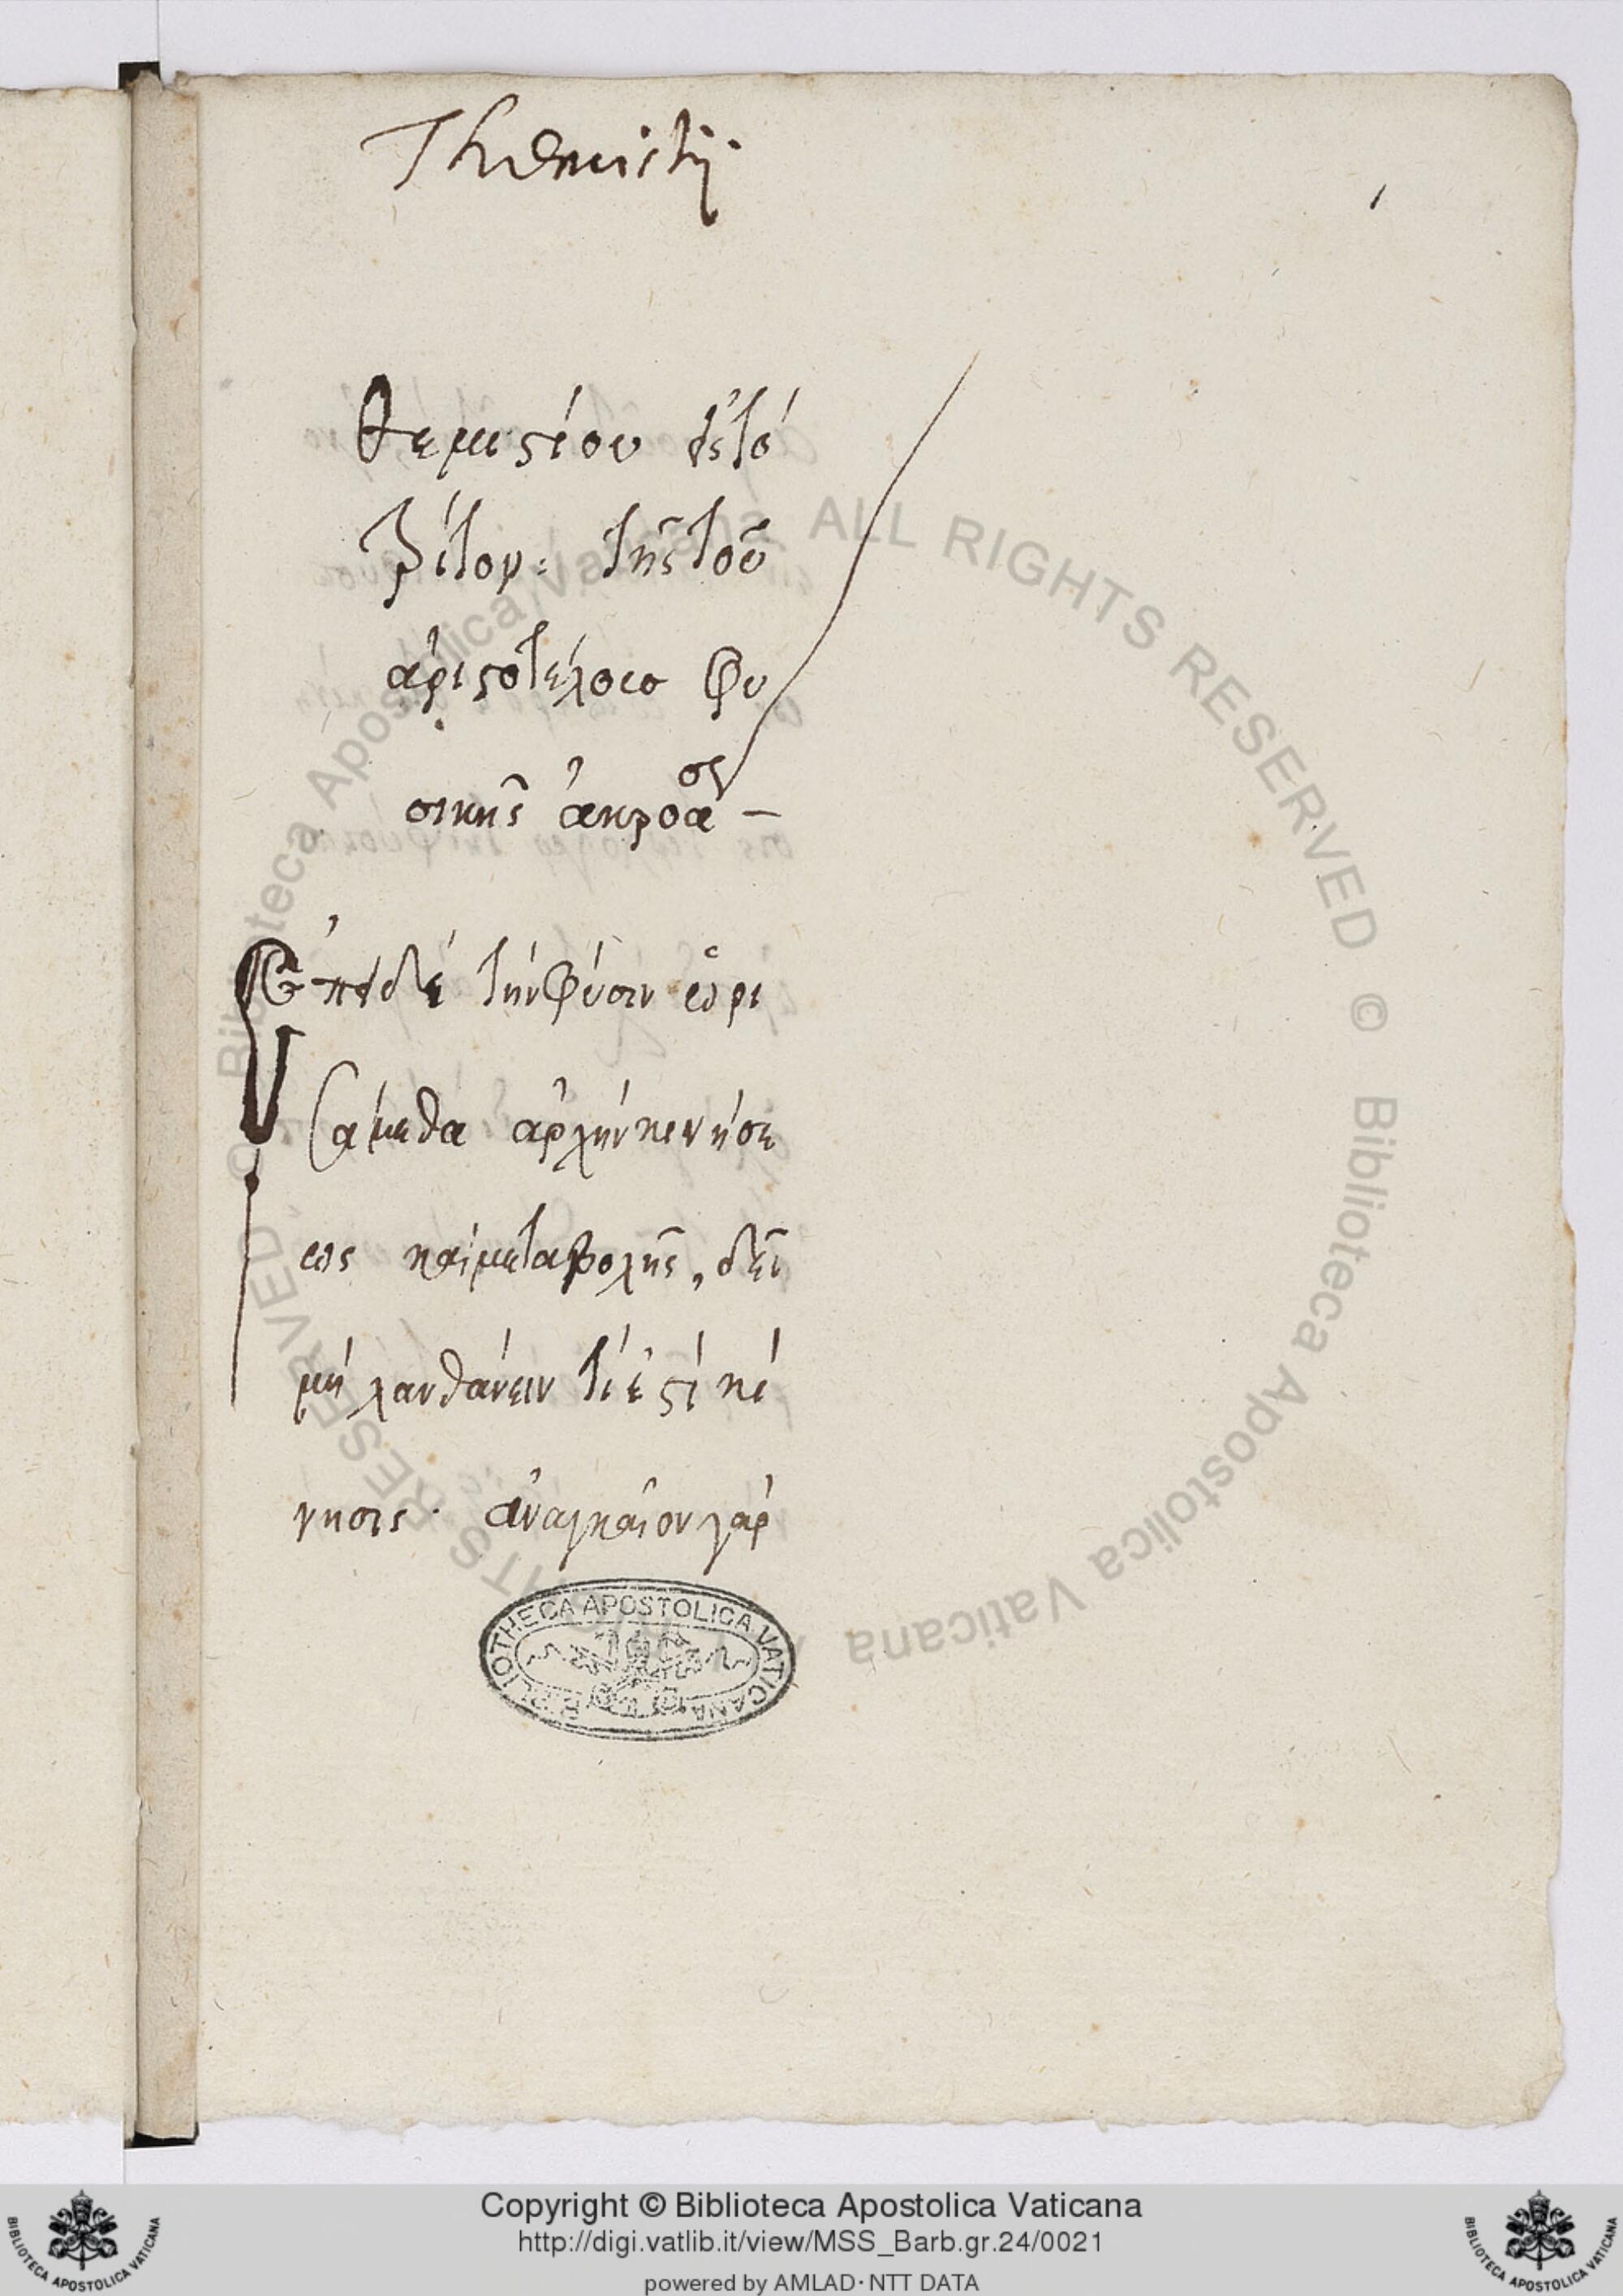 Themistij.
θεμιστίου εἰς τὸ
τρίτον: τῆς τοῦ
ἀριστοτέλους φυ
σικῆς ἀκροάσ –
Ἐπεὶ δὲ τὴν φύσιν ὡρι
σάμεθα ἀρχὴν κινήσε
ως καὶ μεταβολῆς, δεῖ
μὴ λανθάνειν τί ἐστὶ κί
νησις· ἀναγκαῖον γὰρ
BIBLIOTHECA APOSTOLICA VATICANA
© Biblioteca Apostolica Vaticana ALL RIGHTS RESERVED © Biblioteca Apostolica Vaticana ALL RIGHTS RESERVED
Copyright © Biblioteca Apostolica Vaticana
http://digi.vatlib.it/view/MSS_Barb.gr.24/0021
powered by AMLAD·NTT DATA
BIBLIOTECA APOSTOLICA VATICANA
BIBLIOTECA APOSTOLICA VATICANA